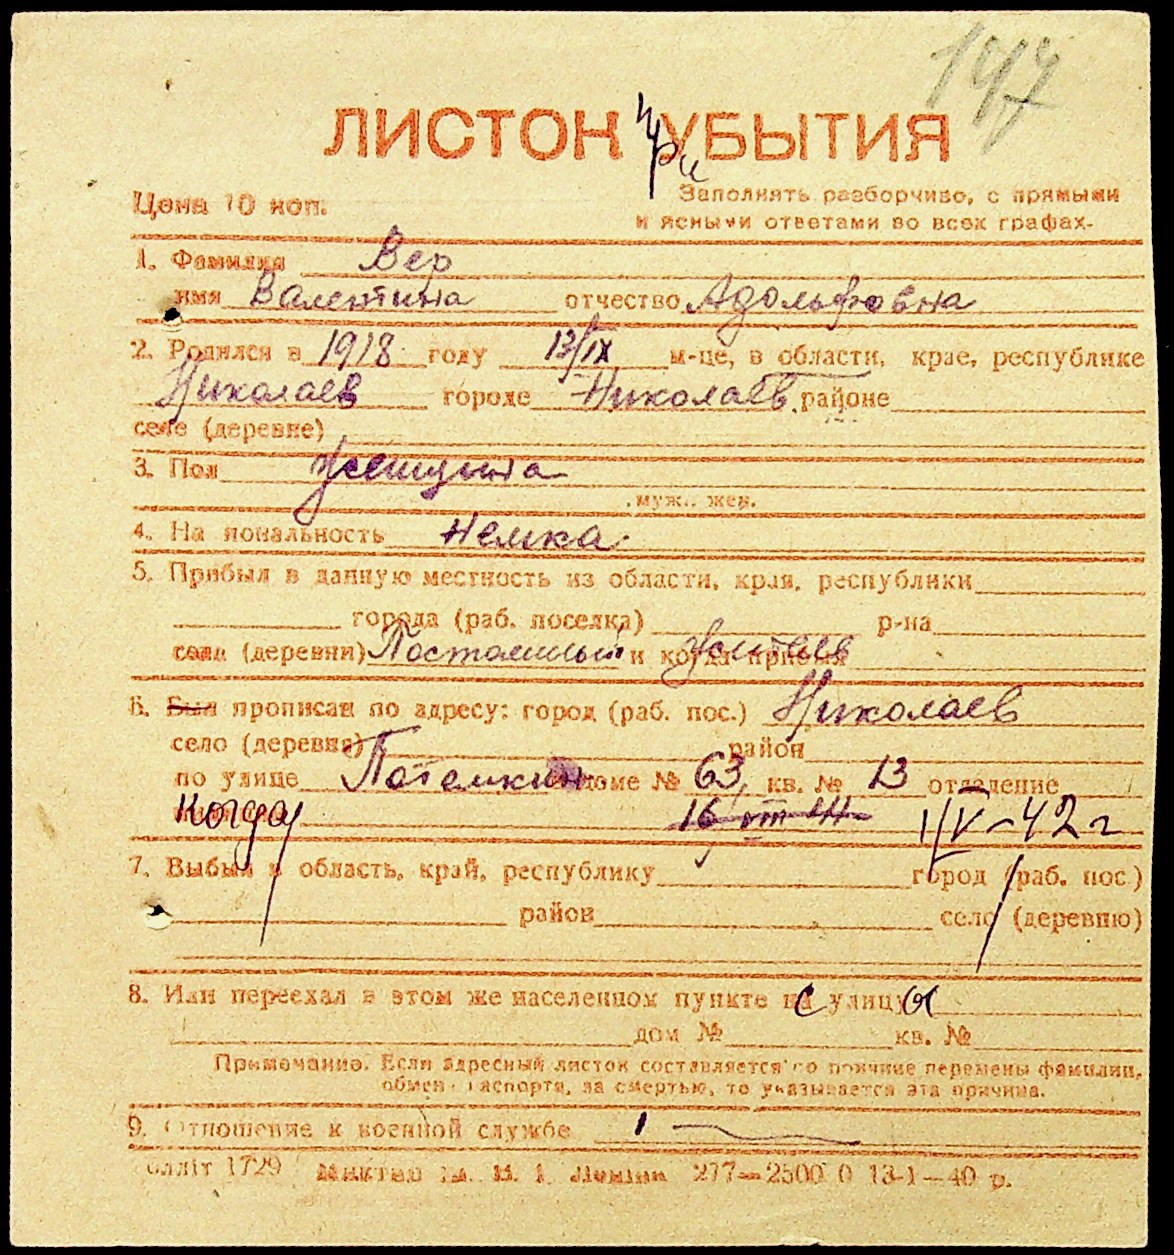 147
ЛИСТОК при УБЫТИЯ
Цена 10 коп.
Заполнять разборчиво, с прямыми
и ясными ответами во всех графах.
1. Фамилия Вер
имя Валентина отчество Адольфовна
2. Родился в 1918 году 13/IX м-це, в области, крае, республике
Николаев городе Николаев районе
селе (деревне)
3. Пол женщина
муж., жен.
4. Национальность немка
5. Прибыл в данную местность из области, края, республики
города (раб. поселка) р-на
села (деревни) Постоянный и когда прибыл житель
6. Был прописан по адресу: город (раб. пос.) Николаев
село (деревня) район
по улице Потемкин доме № 63 кв. № 13 отделение
когда 1/V-42 г
7. Выбыл в область, край, республику город (раб. пос.)
район село (деревню)
8. Или переехал в этом же населенном пункте на улицу
дом № кв. №
Примечание. Если адресный листок составляется по причине перемены фамилии,
обмена паспорта, за смертью, то указывается эта причина.
9. Отношение к военной службе
1729 277—2500 0 13-1—40 р.